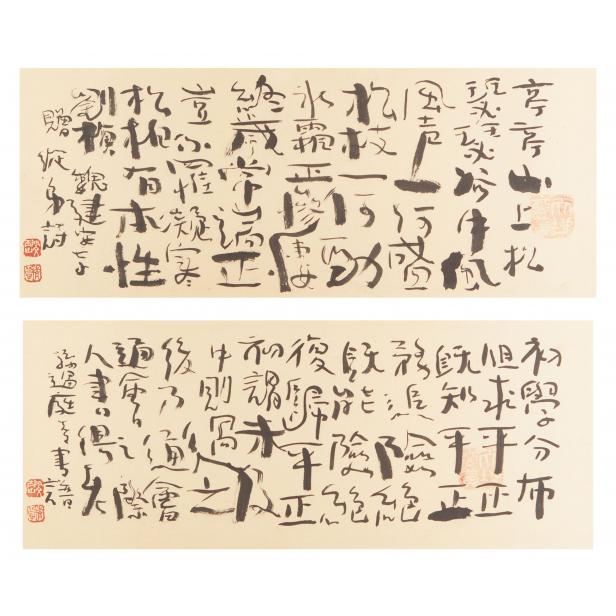 亭亭山上松
瑟瑟谷中風
風声一何盛
松枝一何勁
冰霜正慘凄
終歲常端正
豈不罹凝寒
松柏有本性
劉楨
魏建安七子
贈從弟詩
初學分布
但求平正
既知平正
務追險絕
既能險絕
復歸平正
初謂未及
中則過之
後乃通會
通會之際
人書俱老
孫過庭書譜